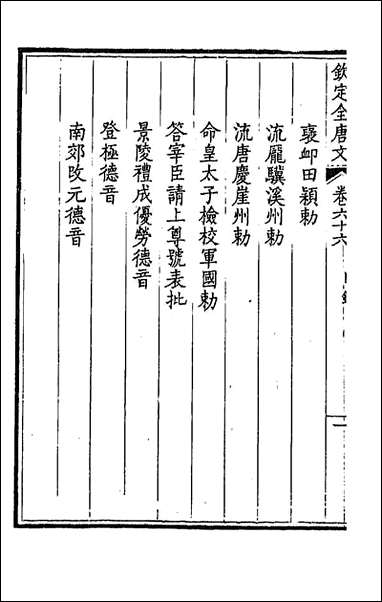 欽定全唐文 卷六十六 目錄 一
褒卹田穎勅
流龎驥溪州勅
流唐慶崖州勅
命皇太子檢校軍國勅
答宰臣請上尊號表批
景陵禮成優勞德音
登極德音
南郊改元德音